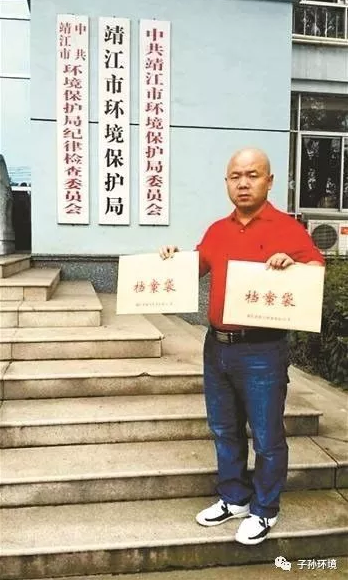 中共
靖江市环境保护局纪律检查委员会
靖江市环境保护局
中共靖江市环境保护局委员会
档案袋
档案袋
子孙环境